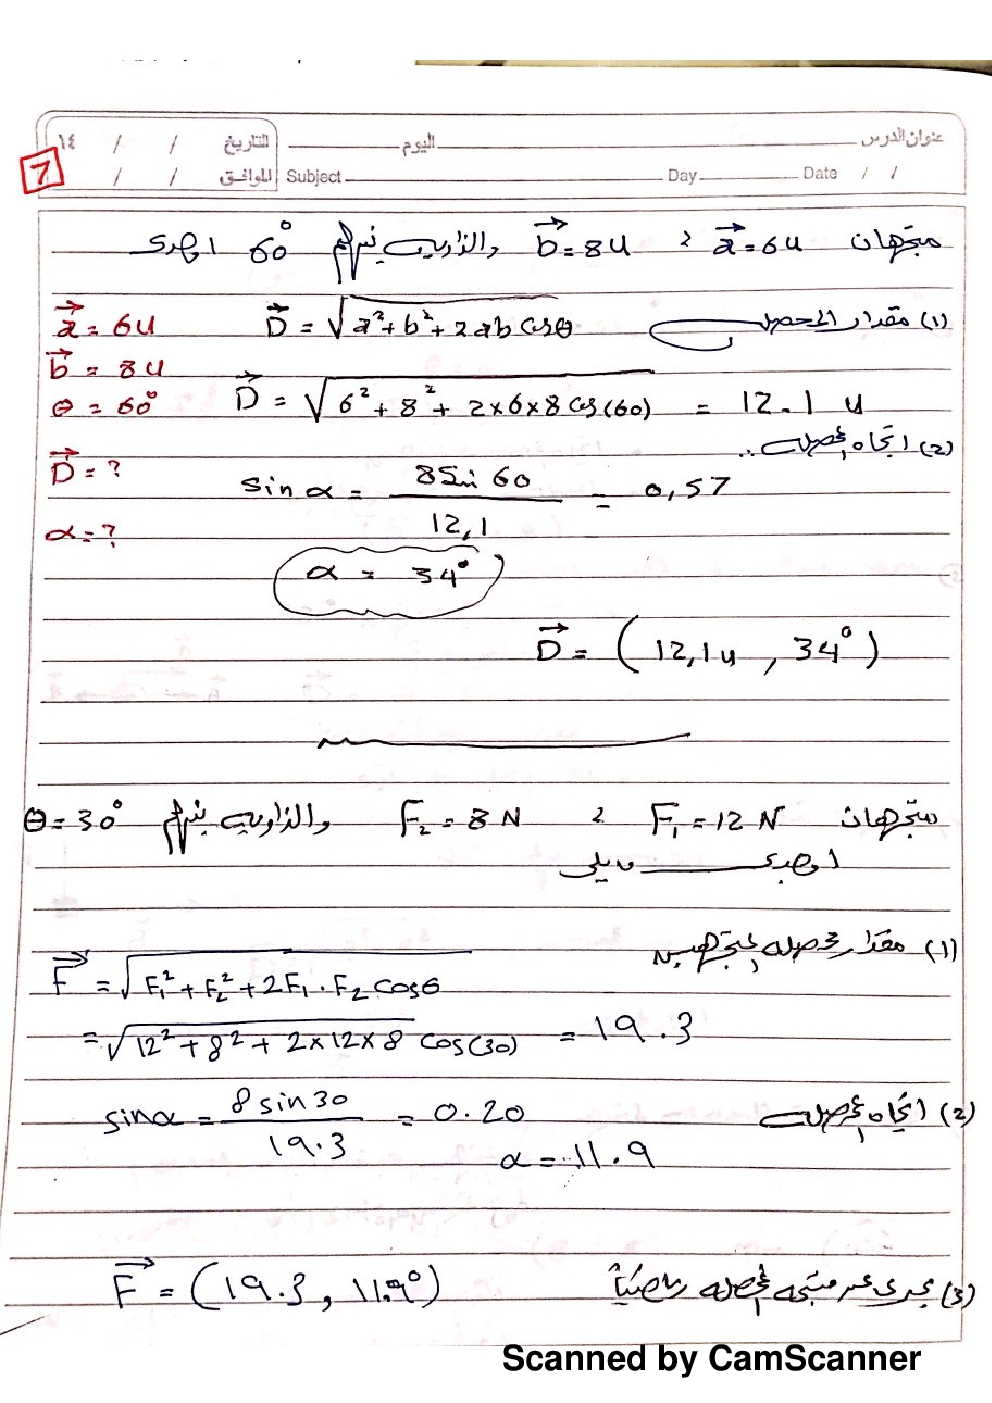 عنوان الدرس اليوم التاريخ / / ١٤
Subject Day Date / / الموافق / /
7
متجهان a⃗ = 6u ؛ b⃗ = 8u والزاوية بينهم 60° اوجدى
(1) مقدار المحصلة D⃗ = √a²+b²+2ab cosθ
a⃗ = 6u
b⃗ = 8u
θ = 60° D⃗ = √6²+8²+2×6×8 cos(60) = 12.1 u
(2) اتجاه المحصلة ..
D⃗ = ?
sin α = 8 Sin 60 / 12,1 = 0,57
α = ?
α = 34°
D⃗ = (12,1u , 34°)
متجهان F₁ = 12 N ؛ F₂ = 8 N والزاوية بينهم θ = 30°
اوجدى مايلى
(1) مقدار محصلة المتجهين
F⃗ = √F₁²+F₂²+2F₁.F₂ cosθ
= √12²+8²+2×12×8 cos(30) = 19.3
(2) اتجاه المحصلة sinα = 8 sin30 / 19.3 = 0.20
α = 11.9
(3) عبرى عن متجه المحصلة رياضياً F⃗ = (19.3 , 11.9°)
Scanned by CamScanner